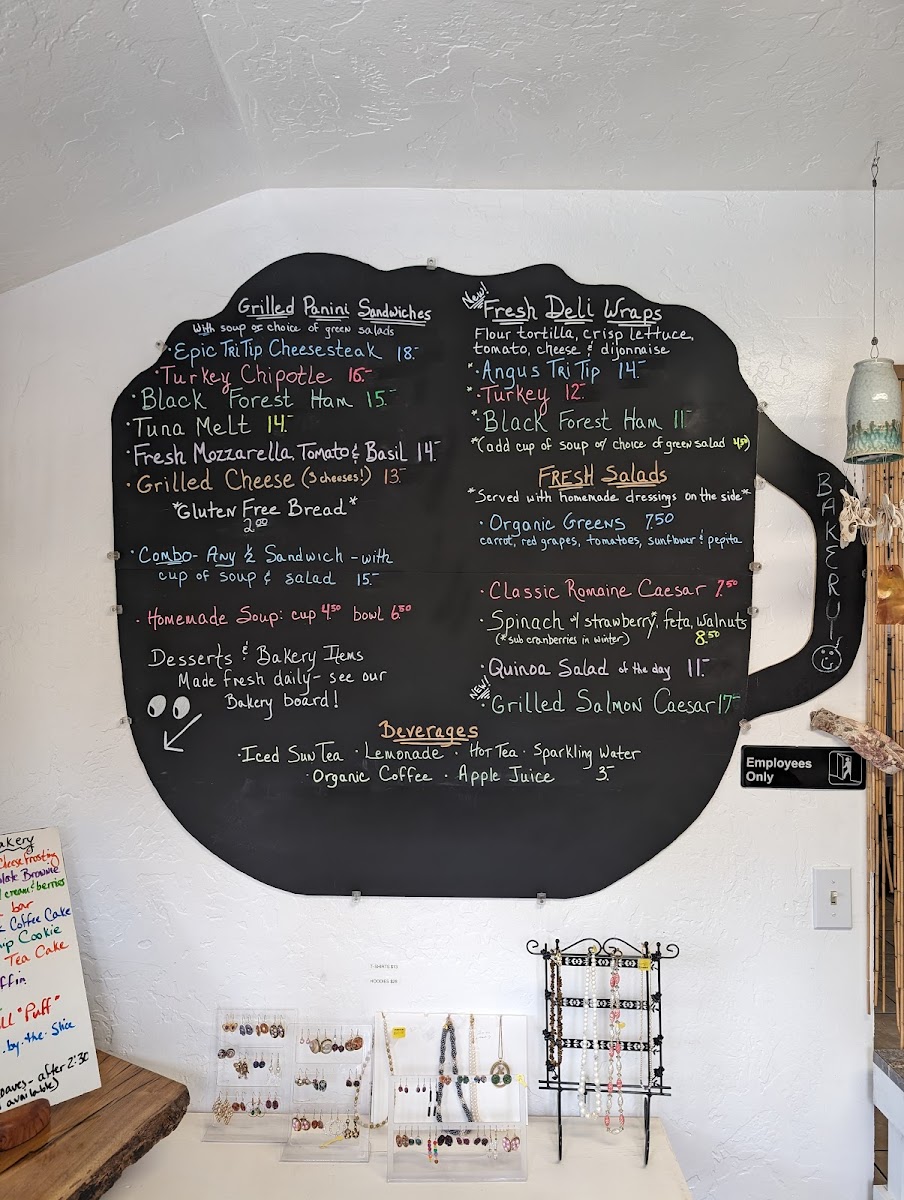 Grilled Panini Sandwiches
with soup or choice of green salads
· Epic Tri Tip Cheesesteak 18.-
· Turkey Chipotle 16.-
· Black Forest Ham 15.-
· Tuna Melt 14.-
· Fresh Mozzarella, Tomato & Basil 14.-
· Grilled Cheese (3 cheeses!) 13.-
*Gluten Free Bread*
2.00
· Combo - Any ½ Sandwich - with
cup of soup & salad 15.-
· Homemade Soup: cup 4.50 bowl 6.50
Desserts & Bakery Items
Made fresh daily - see our
Bakery board!
New!
Fresh Deli Wraps
Flour tortilla, crisp lettuce,
tomato, cheese & dijonnaise
· Angus Tri Tip 14.-
* Turkey 12.-
* Black Forest Ham 11.-
*(add cup of soup or choice of green salad 4.50)
FRESH Salads
*Served with homemade dressings on the side*
· Organic Greens 7.50
carrot, red grapes, tomatoes, sunflower & pepita
· Classic Romaine Caesar 7.50
· Spinach w/ strawberry*, feta, walnuts
(*sub cranberries in winter) 8.50
· Quinoa Salad of the day 11.-
NEW!
· Grilled Salmon Caesar 17.-
Beverages
· Iced Sun Tea · Lemonade · Hot Tea · Sparkling Water
· Organic Coffee · Apple Juice 3.-
BAKERY!
Employees
Only
akery
Cheese Frosting
late Brownie
cream & berries
bar
Coffee Cake
ip Cookie
Tea Cake
ffin
ll "Puff"
by-the-Slice
oaves - after 2:30
available)
T-SHIRTS $15
HOODIES $25